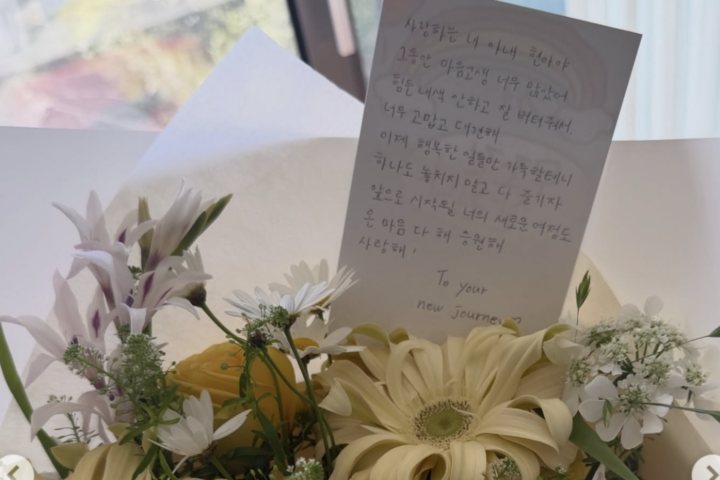 사랑하는 내 아내 현아야
그동안 마음고생 너무 많았어
힘든 내색 안하고 잘 버텨줘서
너무 고맙고 대견해
이제 행복한 일들만 가득할테니
하나도 놓치지 말고 다 즐기자
앞으로 시작될 너의 새로운 여정도
온 마음 다 해 응원해
사랑해.
To your
new journey